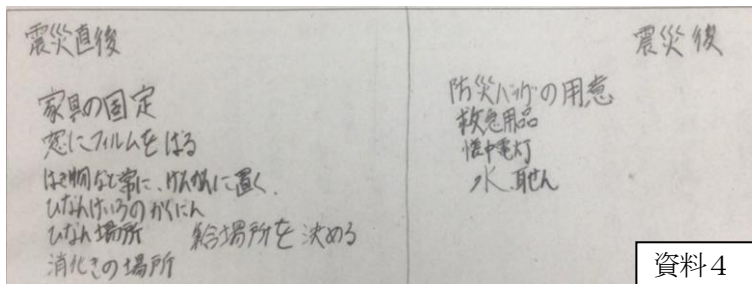 震災直後
家具の固定
窓にフィルムをはる
はき物など常に、げんかんに置く、
ひなんけいろのかくにん
ひなん場所 給場所を決める
消化きの場所
震災後
防災バッグの用意
救急用品
懐中電灯
水
資料4